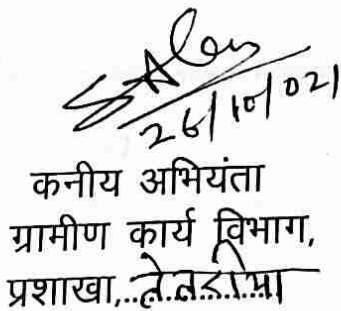 26/10/021
कनीय अभियंता
ग्रामीण कार्य विभाग,
प्रशाखा,..तेतरीया